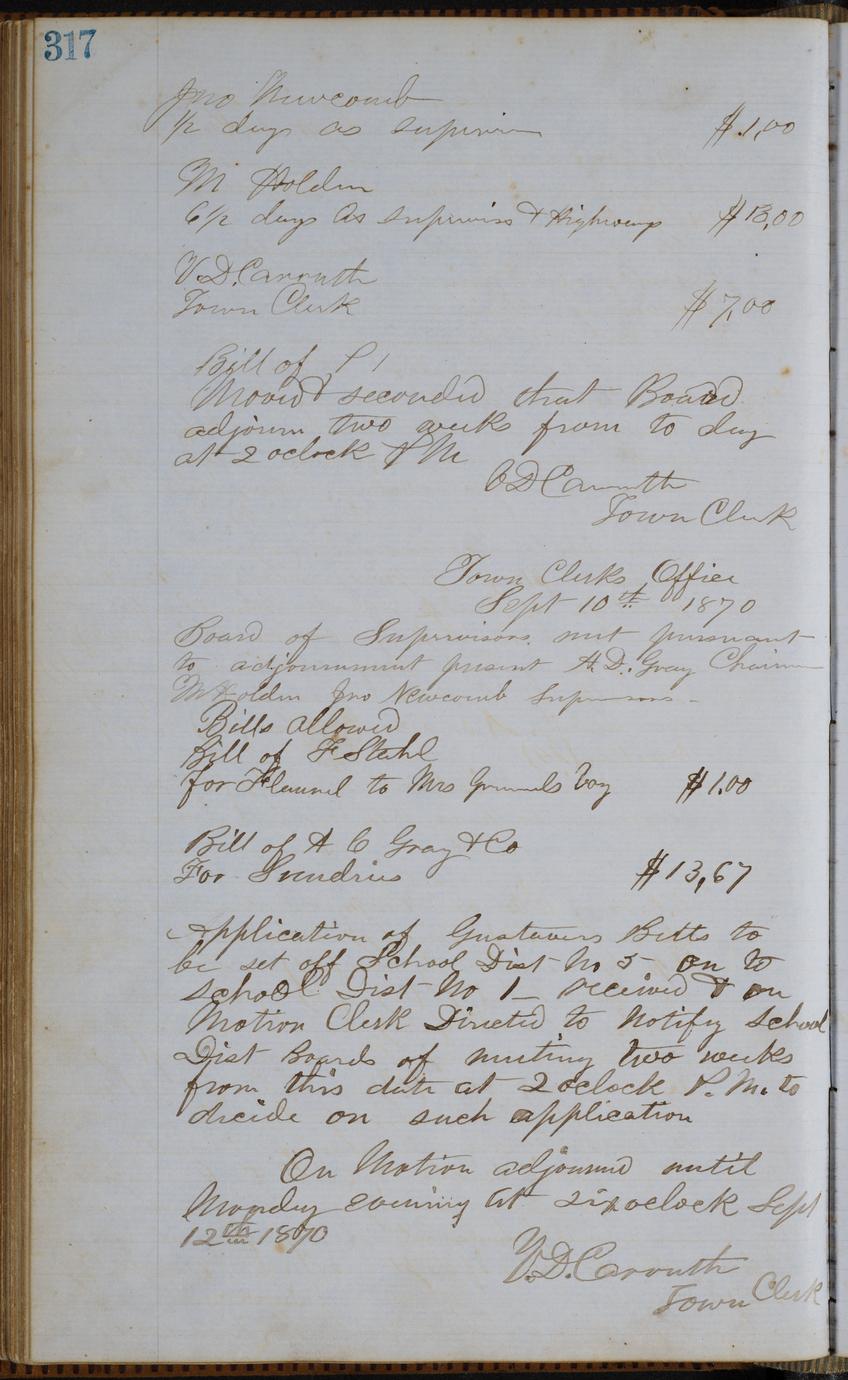 317
Jno Newcomb
1/2 days as supervisor $1,00
M Holden
6 1/2 days As supervisor & Highways $13,00
V. D. Carruth
Town Clerk $7,00
Bill of
Moved & seconded that Board
adjourn two weeks from to day
at 2 oclock P M
V D Carruth
Town Clerk
Town Clerks Office
Sept 10th 1870
Board of Supervisors met pursuant
to adjournment present A. D. Gray Chairman
M Holden Jno Newcomb Supervisors -
Bills allowed
Bill of F Stahl
for Flannel to Mrs boy $1.00
Bill of A C Gray & Co
For Sundries $13,67
Application of Gustavus Betts to
be set off School Dist No 5 on to
school Dist No 1 - received & on
Motion Clerk Directed to Notify school
Dist Boards of meeting two weeks
from this date at 2 oclock P. M. to
decide on such application
On Motion adjourned until
Monday evening at oclock Sept
12th 1870
V. D. Carruth
Town Clerk